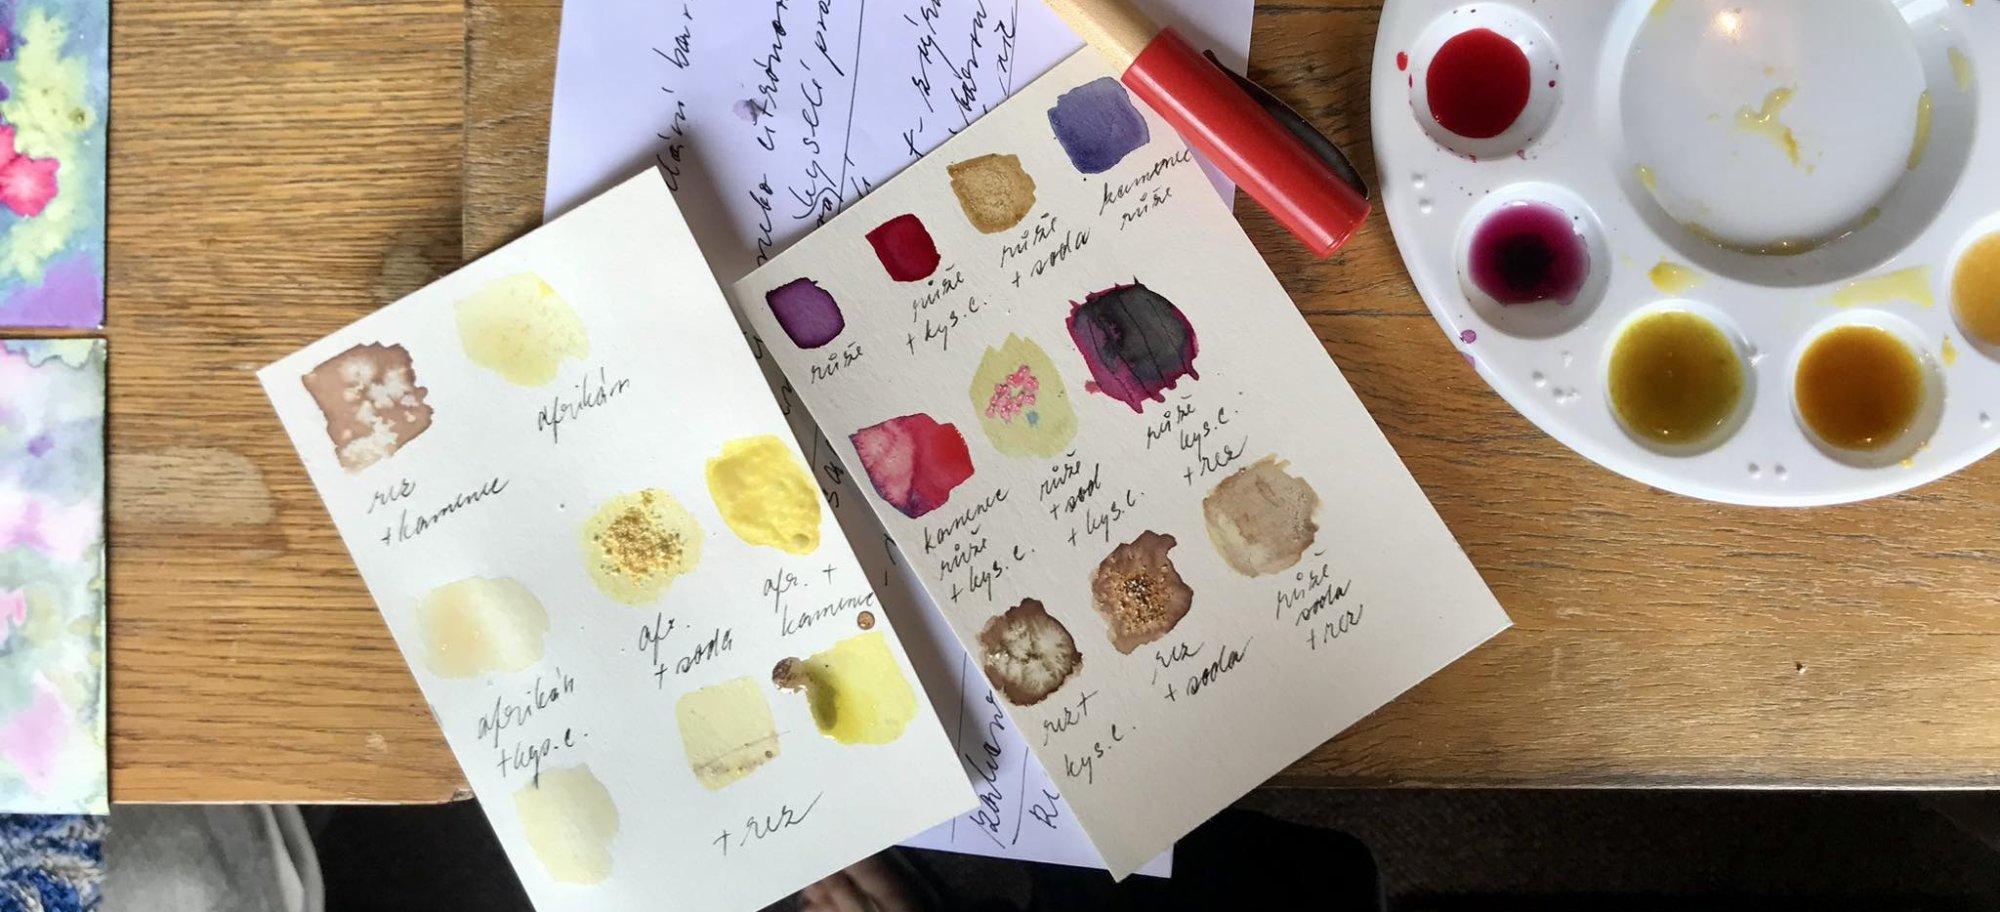 rez
+ kamenec
afrikán
afrikán
+ kys. c.
afr.
+ soda
afr. +
kamenec
+ rez
růže
růže
+ kys. c.
růže
+ soda
kamenec
růže
kamenec
růže
+ kys. c.
růže
+ sod
+ kys. c.
růže
kys. c.
+ rez
rez +
kys. c.
rez
+ soda
růže
soda
+ rez
nebo citrónov
kyselí pra